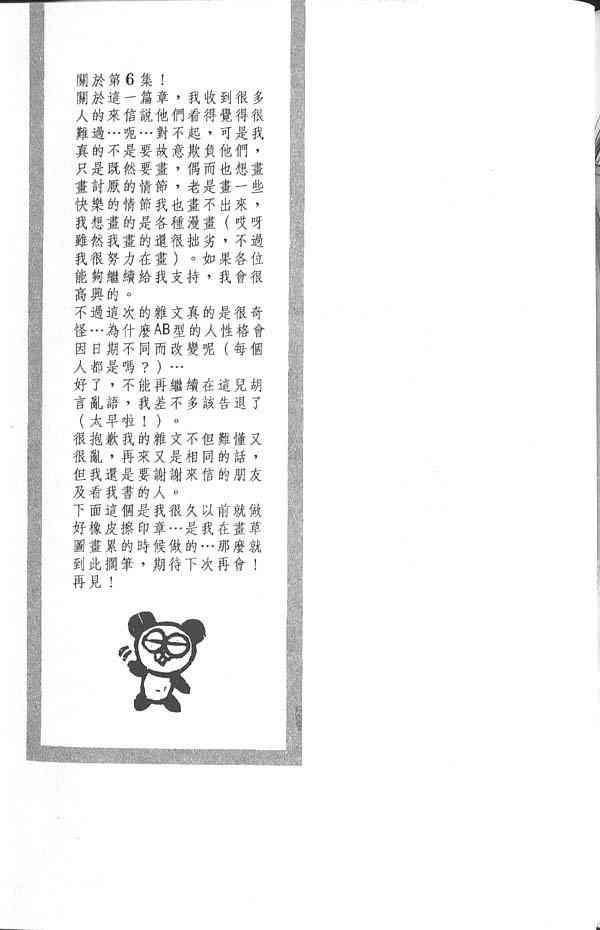 關於第6集!
關於這一篇章,我收到很多
人的來信說他們看得覺得很
難過…呃…對不起,可是我
真的不是要故意欺負他們,
只是既然要畫,偶而也想畫
畫討厭的情節,老是畫一些
快樂的情節我也畫不出來,
我想畫的是各種漫畫(哎呀
雖然我畫的還很拙劣,不過
我很努力在畫)。如果各位
能夠繼續給我支持,我會很
高興的。
不過這次的雜文真的是很奇
怪…為什麼AB型的人性格會
因日期不同而改變呢(每個
人都是嗎?)…
好了,不能再繼續在這兒胡
言亂語,我差不多該告退了
(太早啦!)
很抱歉我的雜文不但難懂又
很亂,再來又是相同的話,
但我還是要謝謝來信的朋友
及看我書的人。
下面這個是我很久以前就做
好橡皮擦印章…是我在畫草
圖畫累的時候做的…那麼就
到此擱筆,期待下次再會!
再見!